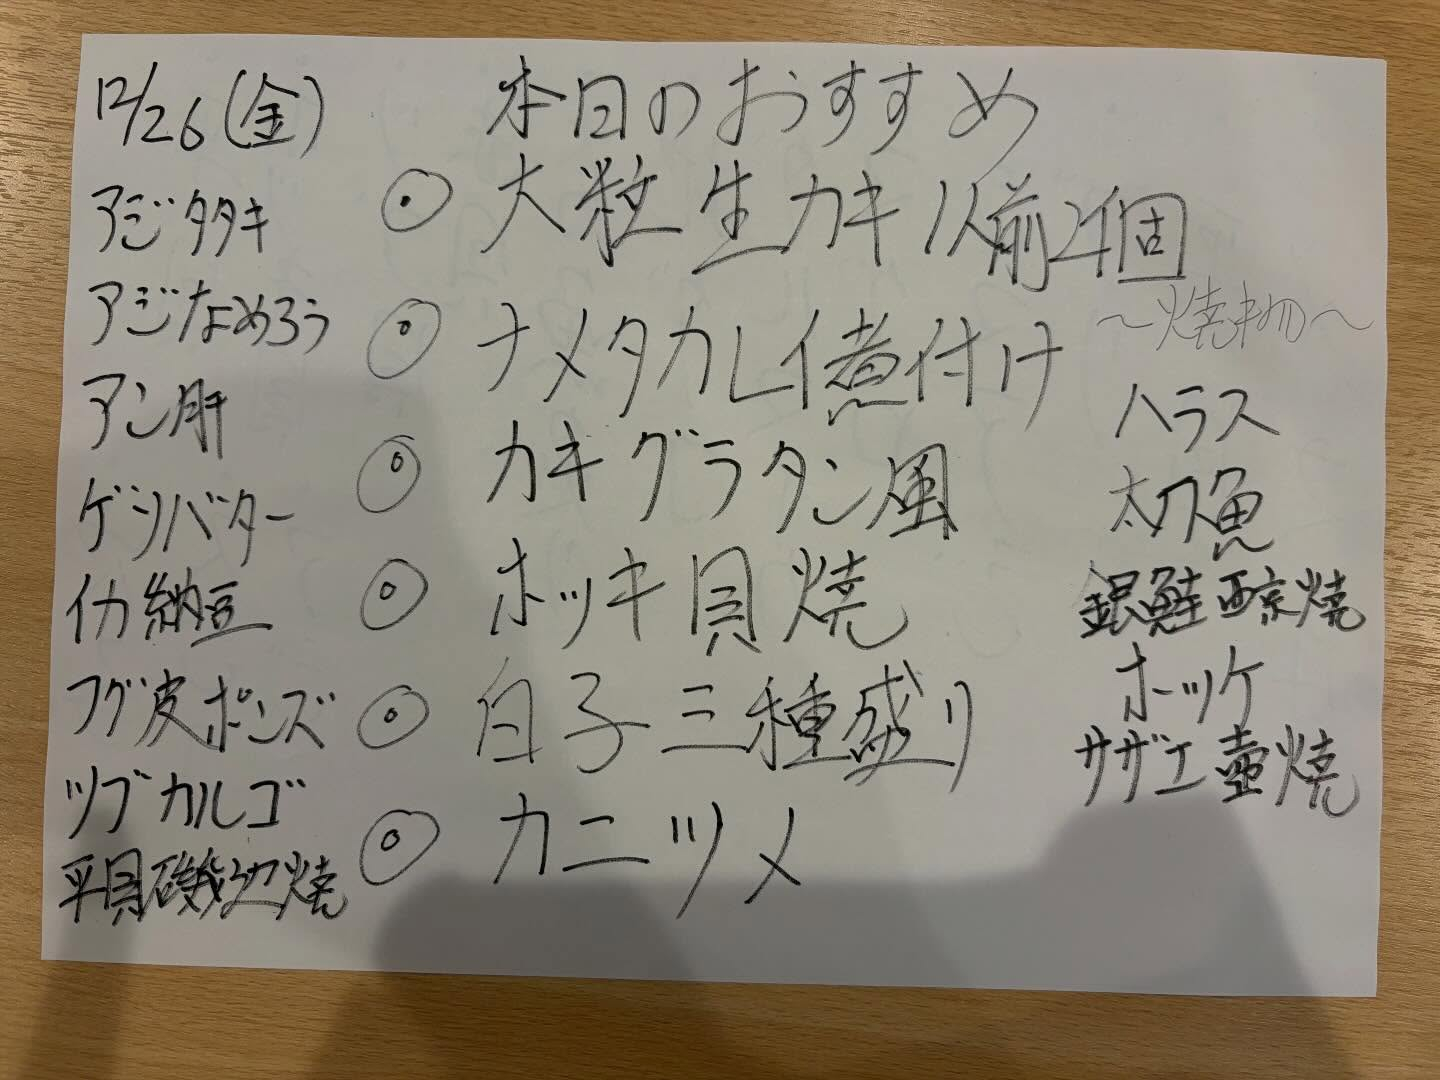 12/26(金)
アジタタキ
アジなめろう
アン肝
ゲソバター
イカ納豆
フグ皮ポンズ
ツブカルゴ
平貝磯辺焼
本日のおすすめ
◎大粒生カキ1人前2個
◎ナメタカレイ煮付け
◎カキグラタン風
◎ホッキ貝焼
◎白子三種盛り
◎カニツメ
〜焼き物〜
ハラス
太刀魚
銀鮭西京焼
ホッケ
サザエ壺焼